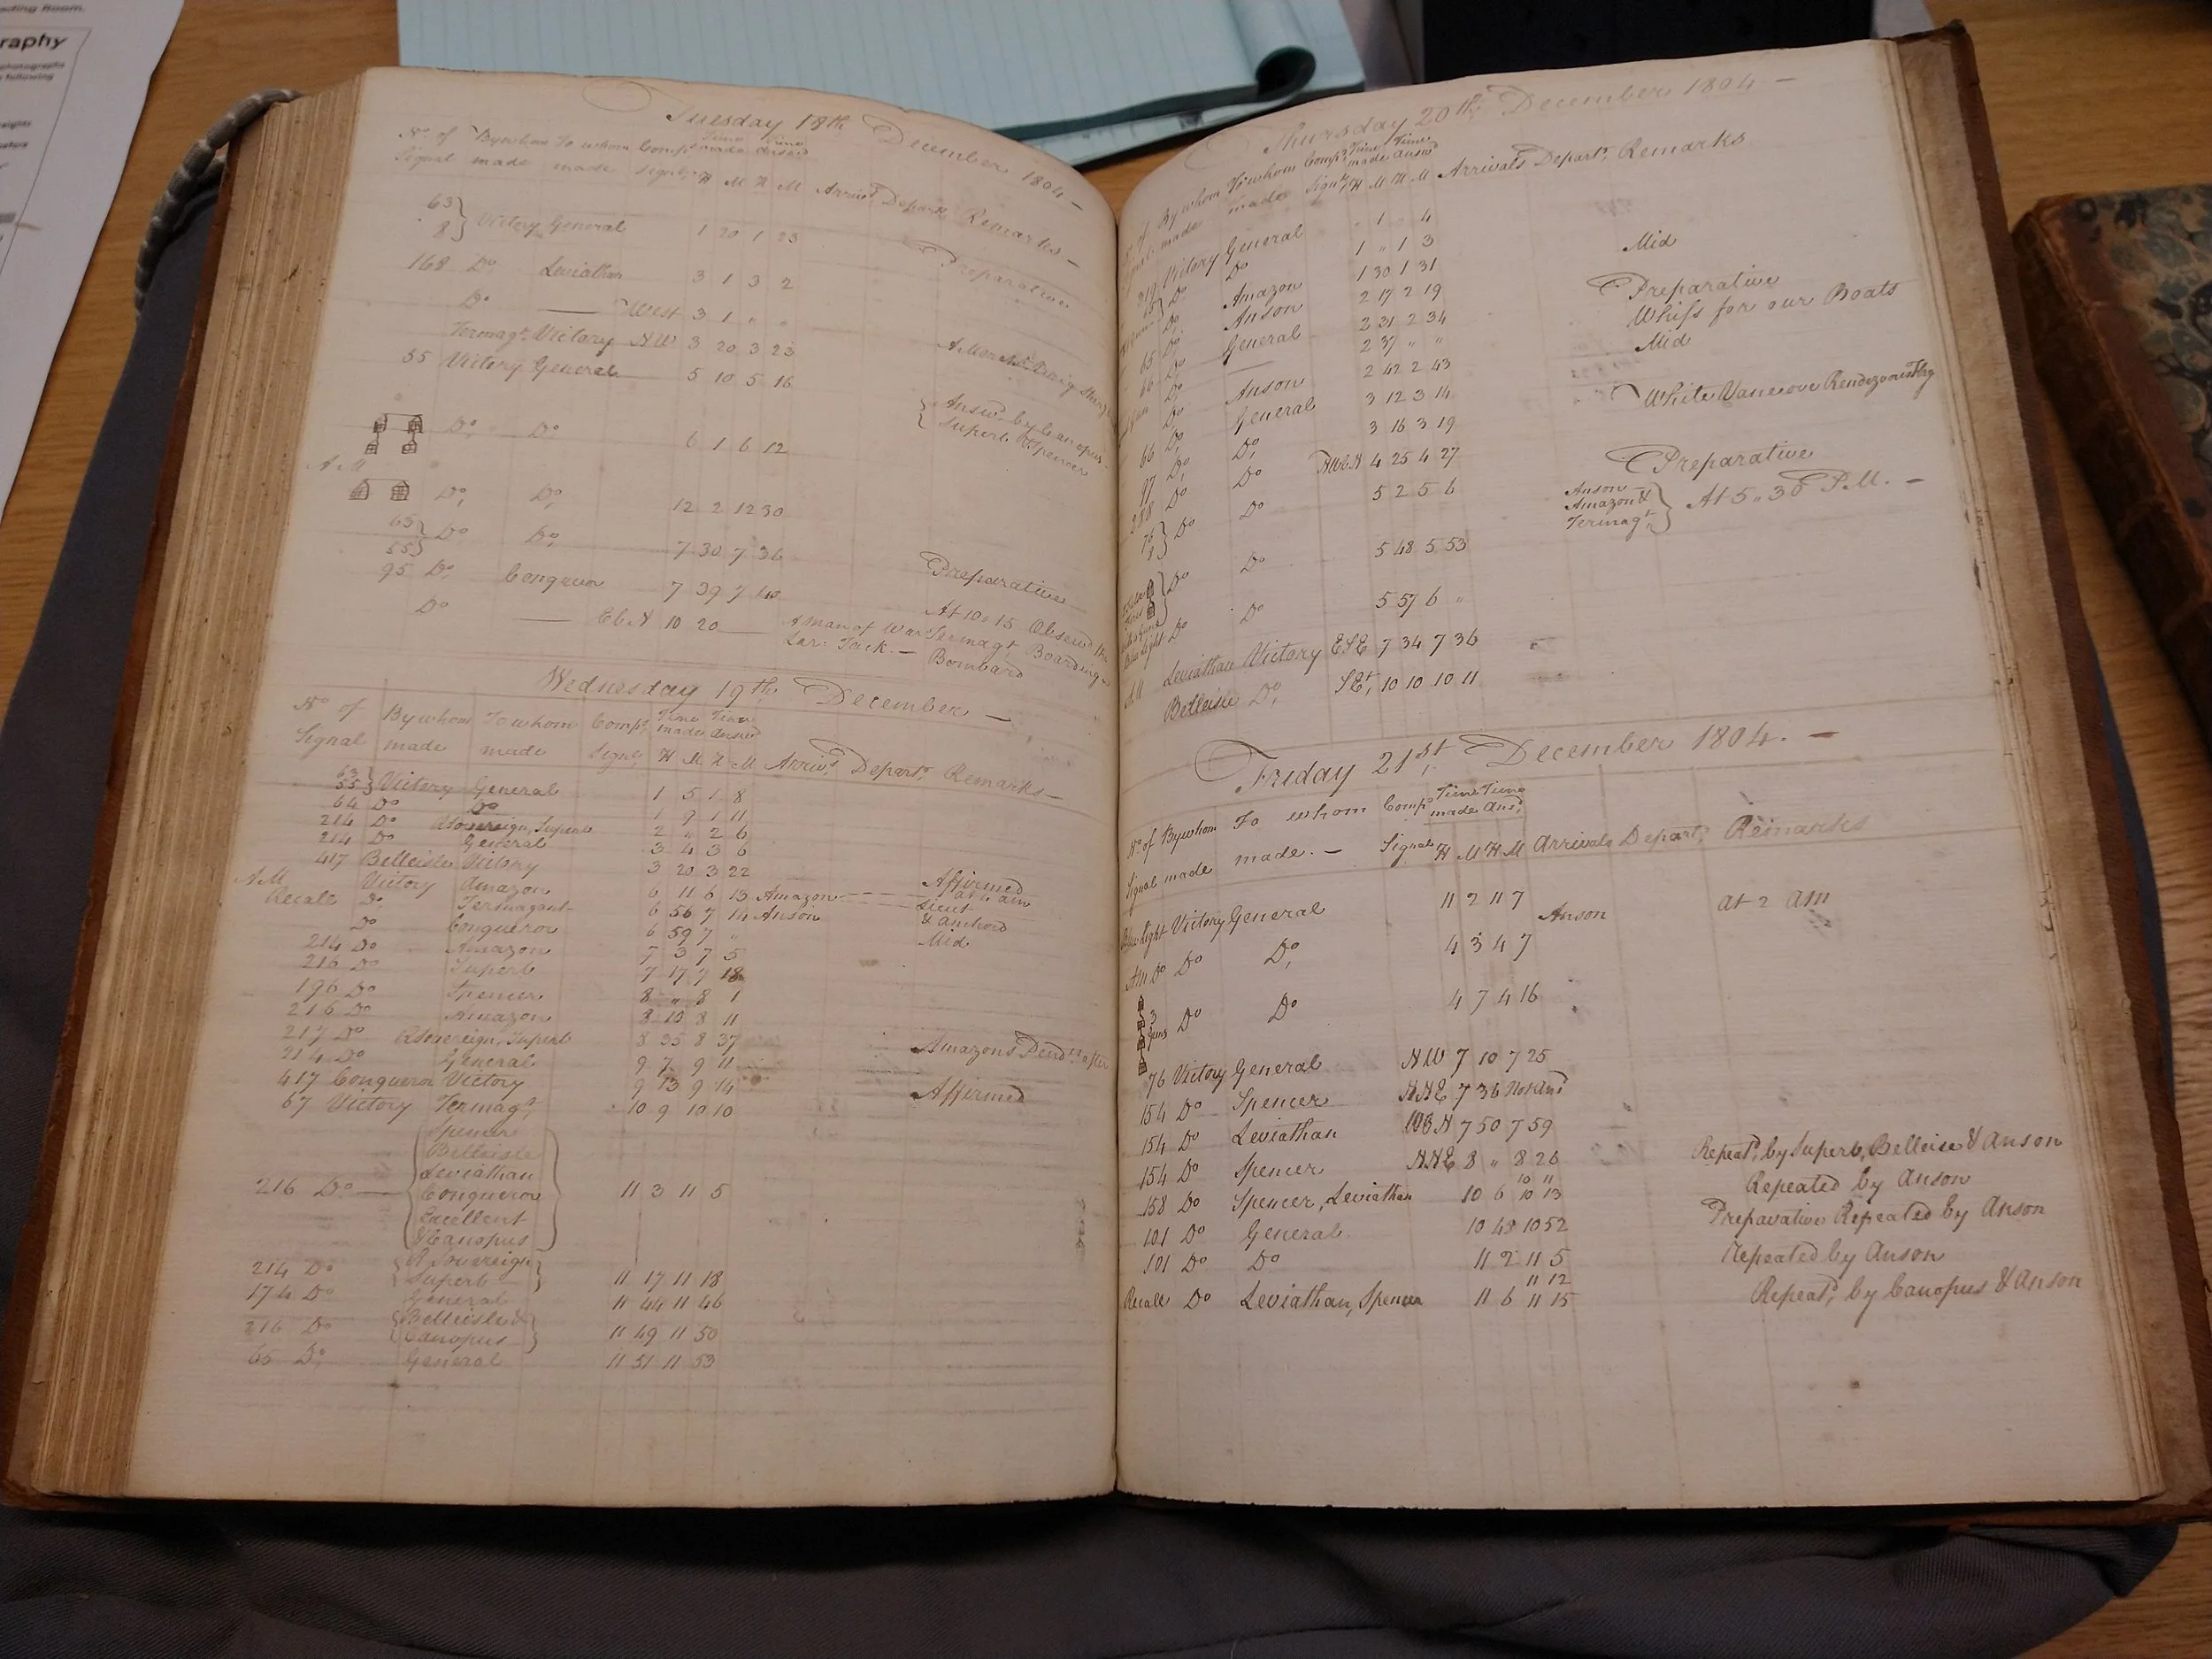 ading Room.
raphy
photographs
following
Tuesday 18th December 1804 —
No. of By whom To whom Comps. Time Time
Signal made made Signl. made Answd
H M H M Arrivs. Depart. Remarks —
63 }
8 } Victory General 1 20 1 23 Preparative
168 Do. Leviathan 3 1 3 2
Do — West 3 1 " "
Termagt. Victory NW 3 20 3 23
55 Victory General 5 10 5 16
Do. Do. 6 1 6 12 { Answd. by Canopus
Superb & Spencer
AM
Do. Do. 12 2 12 30
63 }
55 } Do Do. 7 30 7 36 Preparative
95 Do. Conqueror 7 39 7 40
Do — EbN 10 20 — A man of War At 10.15 Observd. the
Lar. Tack. — Termagt. Boarding a
Bombard
Wednesday 19th. December —
No of By whom To whom Comps. Time Time
Signal made made Signl. made Answd
H M H M Arrivs. Depart. Remarks —
63 }
55 } Victory General 1 5 1 8
64 Do Do 1 9 1 11
214 Do RSovereign, Superb 2 " 2 6
214 Do General 3 4 3 6
417 Belleisle Victory 3 20 3 22 Affirmed
AM Victory Amazon 6 11 6 13 Amazon
Recall Do Termagant 6 56 7 14 Anson
Do Conqueror 6 59 7 " Mid
214 Do Amazon 7 3 7 5
216 Do Superb 7 17 7 18
196 Do Spencer 8 " 8 1
216 Do Amazon 8 10 8 11
217 Do RSovereign, Superb 8 35 8 37 Amazons Pendts. after
214 Do General 9 7 9 11
417 Conqueror Victory 9 13 9 14 Affirmed
67 Victory Termagt. 10 9 10 10
216 Do — { Spencer
Belleisle
Leviathan
Conqueror 11 3 11 5
Excellent
& Canopus }
214 Do { R Sovereign
Superb } 11 17 11 18
174 Do General 11 44 11 46
216 Do { Belleisle &
Canopus } 11 49 11 50
65 Do. General 11 51 11 53
Thursday 20th. December 1804 —
By whom To whom Comps. Time Time
made made Signl. made Answd
H M H M Arrivals Depart. Remarks
Victory General " 1 " 4
Do. Do 1 " 1 3 Mid
Do. Amazon 1 30 1 31
65 Do. Anson 2 17 2 19 Preparative
66 Do. General 2 31 2 34 Whifs for our Boats
Do. — 2 37 " " Mid
Do. Anson 2 42 2 43
66 Do. General 3 12 3 14 White Vane over Rendezvous Flag
97 Do. Do. 3 16 3 19
288 Do Do NWbN 4 25 4 27 Preparative
76 }
8 } Do Do 5 2 5 6 Anson
Amazon &
Termagt. } At 5.30 P.M. —
Do Do 5 48 5 53
Blue light Do Do 5 57 6 "
AM Leviathan Victory ESE 7 34 7 36
Belleisle Do. SEt. 10 10 10 11
Friday 21st. December 1804. —
No. of By whom To whom Comps. Time Time
Signal made made. — Signals made Ansd.
H M H M Arrivals Depart. Remarks
Blue light Victory General 11 2 11 7 Anson at 2 AM
AM Do Do Do. 4 3 4 7
3 Guns Do Do 4 7 4 16
76 Victory General NW 7 10 7 25
154 Do Spencer NNE 7 36 Not Ansd
154 Do Leviathan WBN 7 50 7 59
154 Do Spencer NNE 8 " 8 26 Repeatd. by Superb, Belleisle & Anson
158 Do Spencer, Leviathan 10 6 10 11
10 13 Repeated by Anson
101 Do General 10 48 10 52 Preparative Repeated by Anson
101 Do Do 11 2 11 5 Repeated by Anson
Recall Do Leviathan, Spencer 11 6 11 12
11 15 Repeatd. by Canopus & Anson